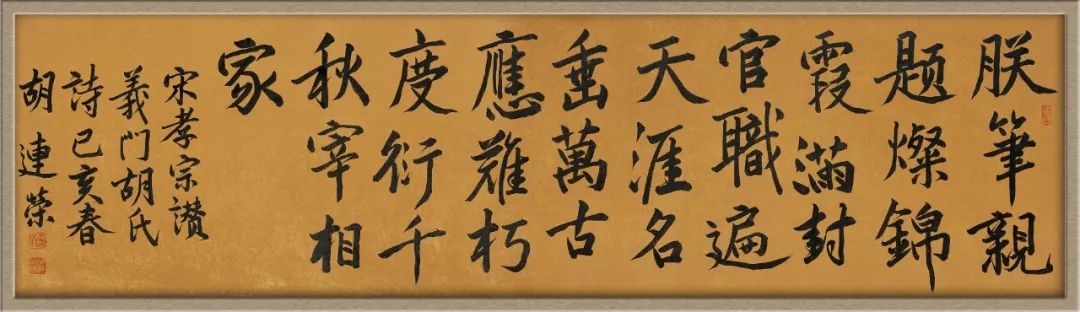 朕筆親
题燦錦
霞滿封
官職遍
天涯名
垂萬古
應難朽
度衍千
秋宰相
家
宋孝宗讃
義門胡氏
詩己亥春
胡連榮